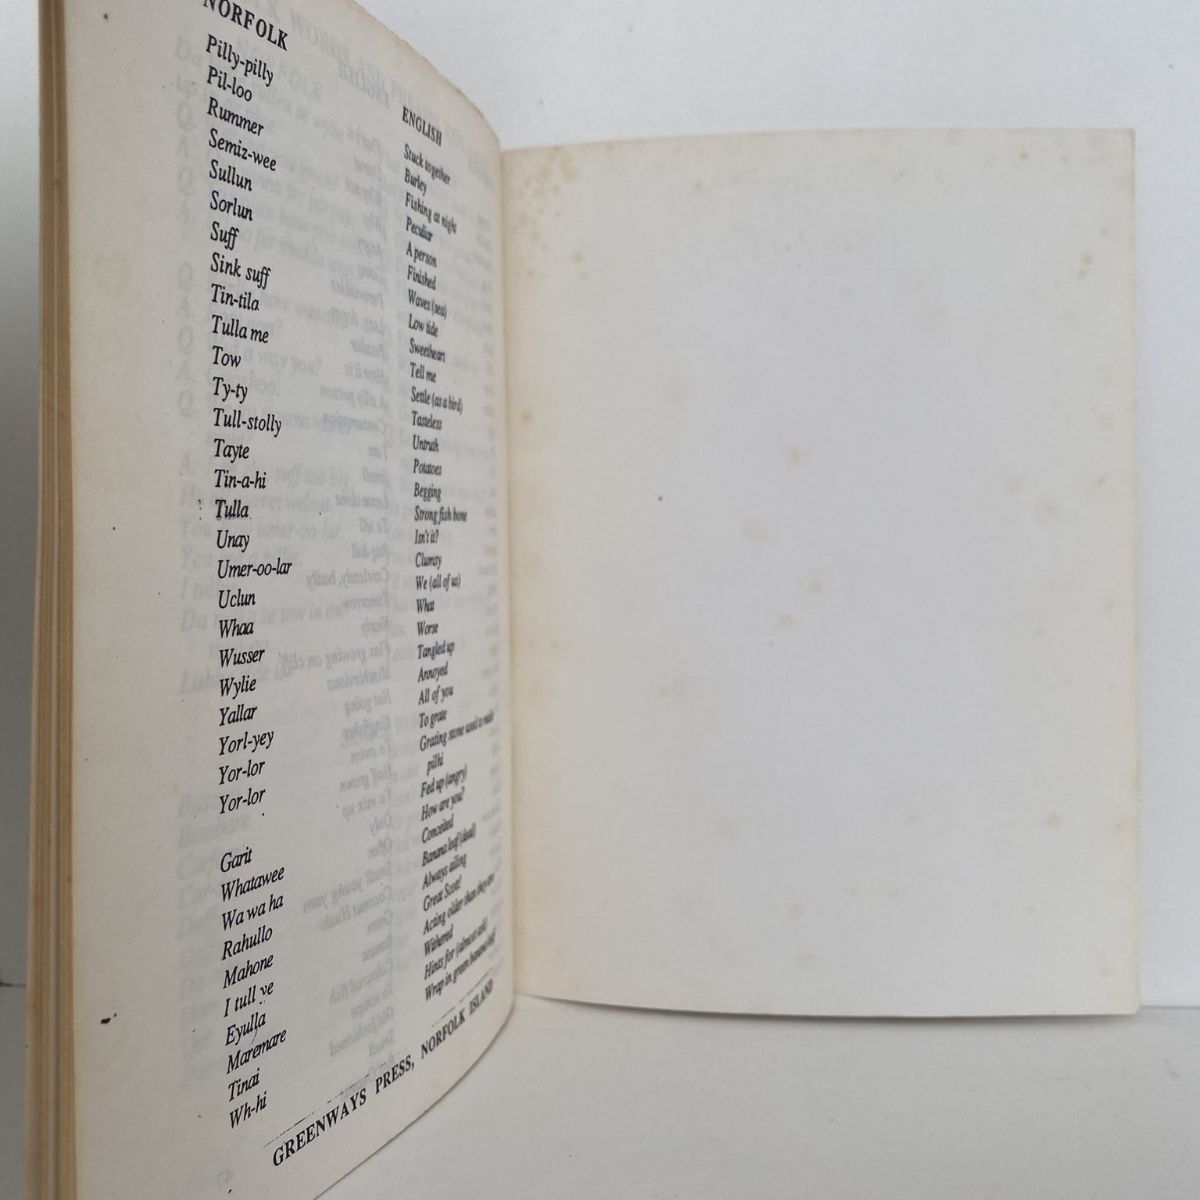 NORFOLK ENGLISH
Pilly-pilly Stuck together
Pil-loo Burley
Rummer Fishing at night
Semiz-wee Peculiar
Sullun A person
Sorlun Finished
Suff Waves (sea)
Sink suff Low tide
Tin-tila Sweetheart
Tulla me Tell me
Tow Settle (as a bird)
Ty-ty Tasteless
Tull-stolly Untruth
Tayte Potatoes
Tin-a-hi Begging
Tulla Strong fish bone
Unay Isn't it?
Umer-oo-lar Clumsy
Uclun We (all of us)
Whaa What
Wusser Worse
Wylie Tangled up
Yallar Annoyed
Yorl-yey All of you
Yor-lor To grate
Yor-lor Grating stone used to make
pilhi
Garit Fed up (angry)
Whatawee How are you?
Wa wa ha Conceited
Rahullo Banana leaf (dead)
Mahone Always ailing
I tull ye Great Scott!
Eyulla Acting older than they are
Maremare Withered
Tinai Hints for (almost ask)
Wh-hi Wrap in green banana leaf
GREENWAYS PRESS, NORFOLK ISLAND